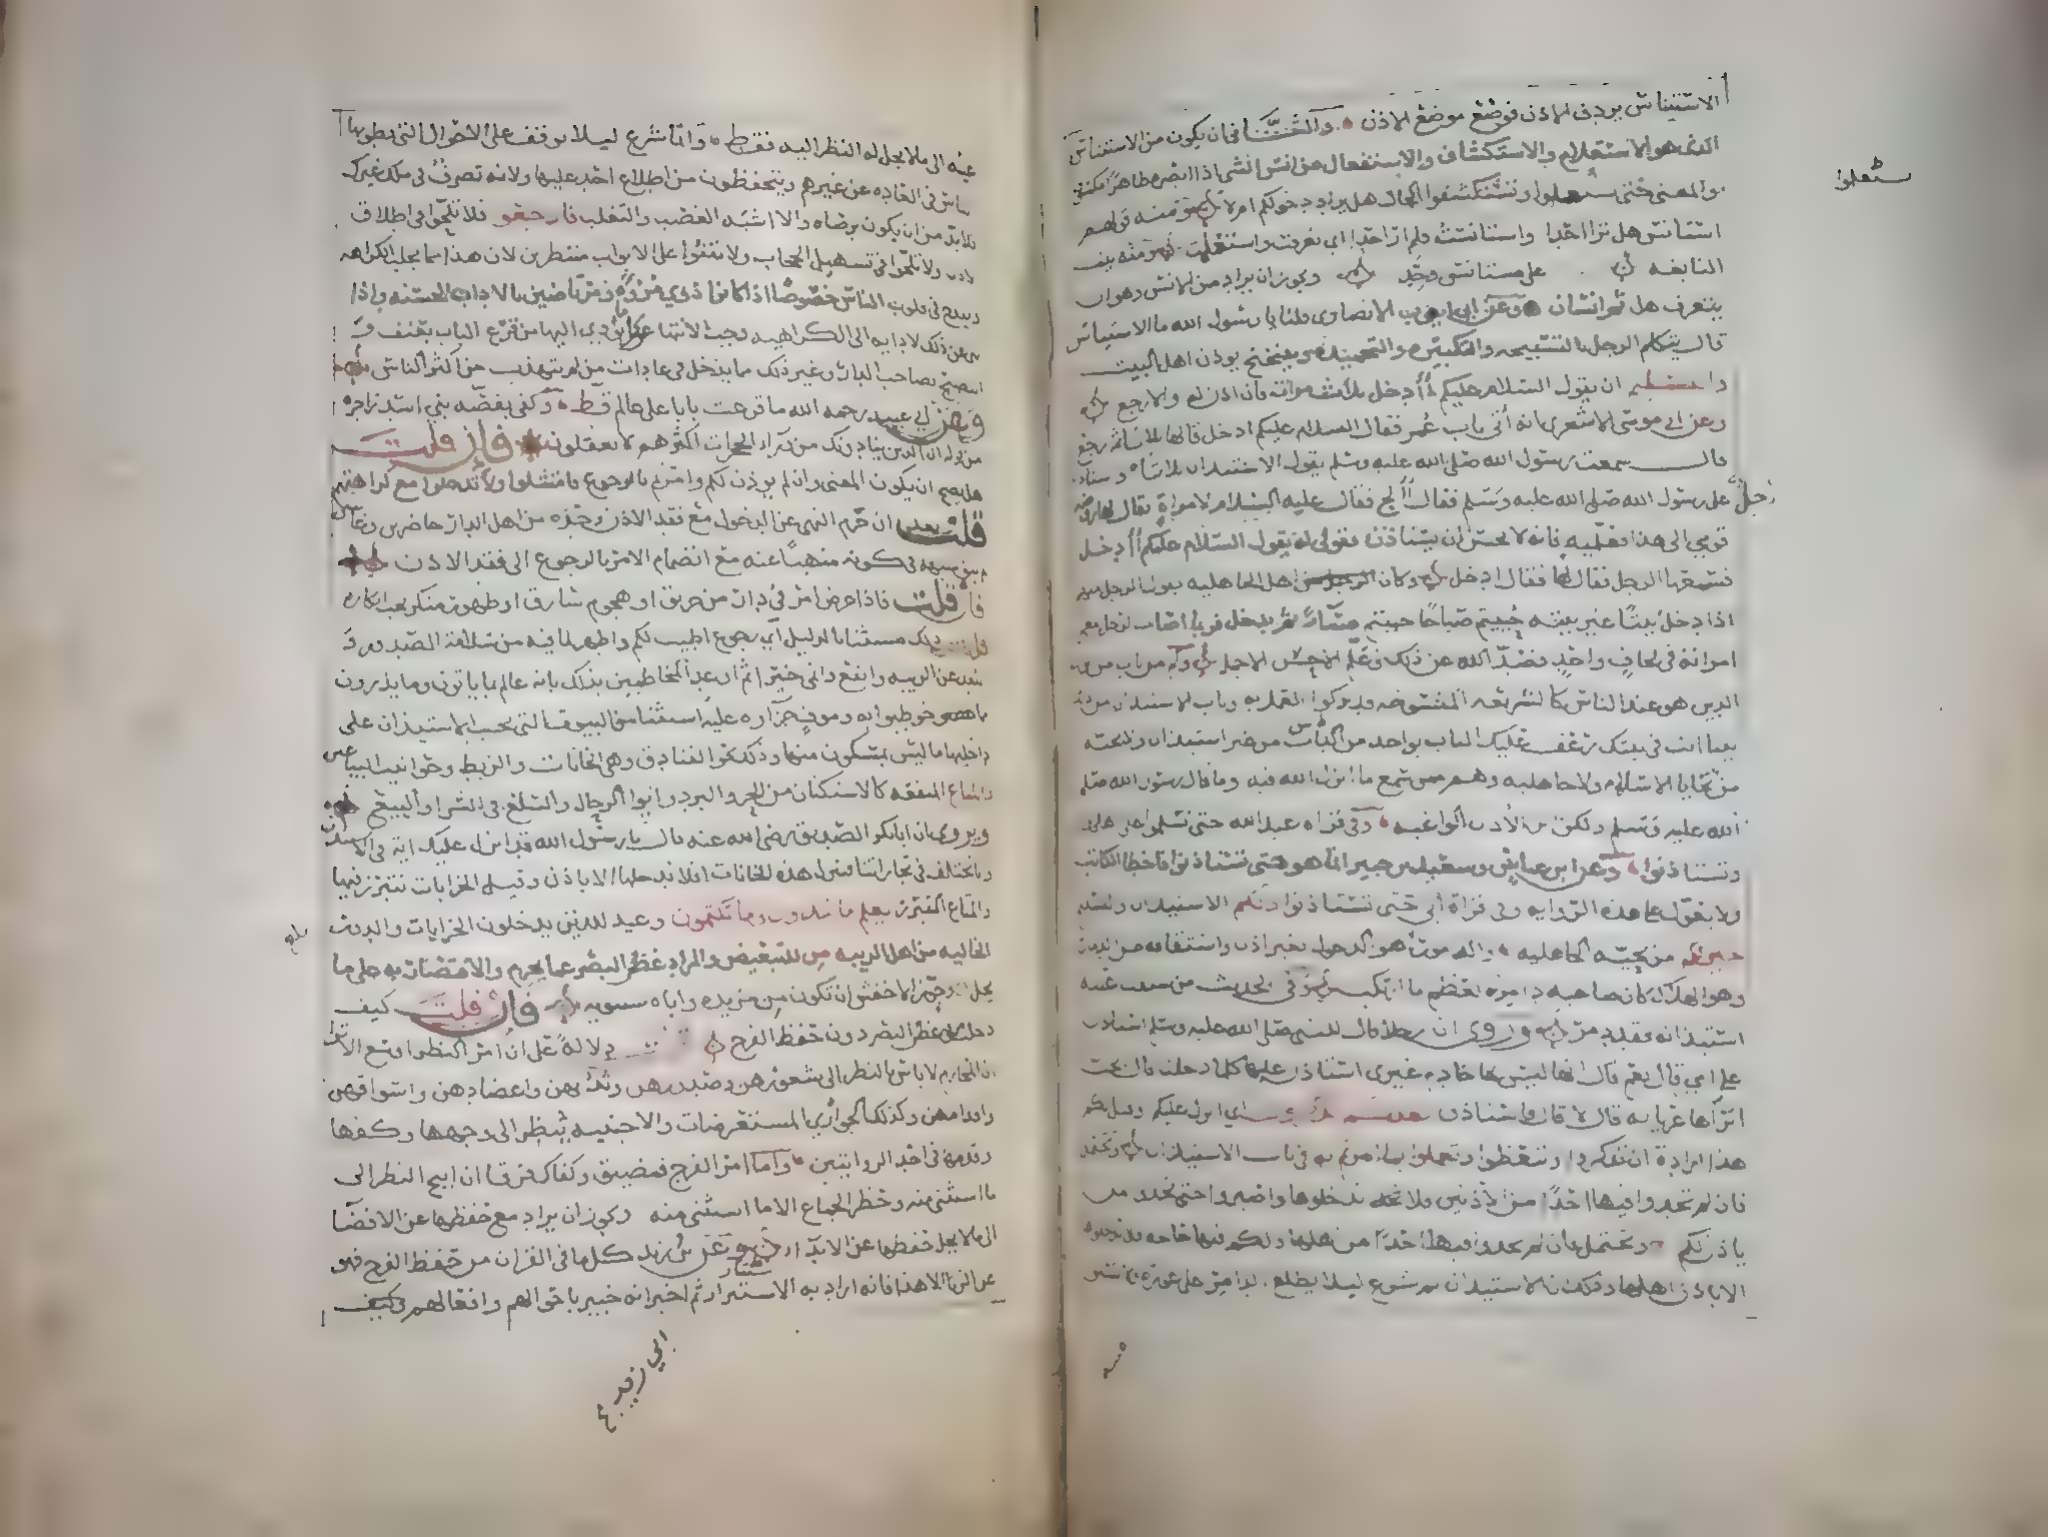 الاستيناس يردف الاذن فوضع موضع الاذن والثاني ان يكون من الاستيناس
الذي هو الاستعلام والاستكشاف والاستفعال من انس الشي اذا ابصره ظاهرا مكشوفا
والمعنى حتى تستعلموا وتستكشفوا الحال هل يراد دخولكم ام لا ومنه قولهم
استانس هل ترا احدا واستانست فلم ار احدا اي تعرفت واستعلمت ومنه بيت
النابغه على مستانس وحد ويجوز ان يراد من الانس وهو ان
يتعرف هل ثم انسان وعن ابي ايوب الانصاري قلنا يا رسول الله ما الاستيناس
قال يتكلم الرجل بالتسبيحه والتكبيره والتحميده ويتنحنح يوذن اهل البيت
والتسليم ان يقول السلام عليكم أأدخل ثلاث مرات فان اذن له والا رجع
وعن ابي موسى الاشعري انه أتى باب عمر فقال السلام عليكم ادخل قالها ثلاثا ثم رجع
وقال سمعت رسول الله صلى الله عليه وسلم يقول الاستيذان ثلاثا واستاذن
رجل على رسول الله صلى الله عليه وسلم فقال أألج فقال عليه السلام لامراة يقال لها روضه
قومي الى هذا فعلميه فانه لا يحسن ان يستاذن فقولي له يقول السلام عليكم أأدخل
فسمعها الرجل فقالها فقال ادخل وكان اهل الجاهليه يقول الرجل منهم
اذا دخل بيتا غير بيته حييتم صباحا حييتم مساء ثم يدخل فربما اصاب الرجل مع
امراته في لحاف واحد فصد الله عن ذلك وعلم الاحسن الاجمل وكم من باب من ابواب
الدين هو عند الناس كالشريعه المنسوخه قد تركوا العمل به وباب الاستيذان من ذلك
بينا انت في بيتك رعف عليك الباب بواحد من الناس من غير استيذان ولا تحيه
من تحايا الاسلام ولا جاهليه وهو ممن سمع ما انزل الله فيه وما قال رسول الله صلى
الله عليه وسلم ولكن اين الاذن الواعيه وفي قراة عبد الله حتى تسلموا على اهلها
وتستاذنوا وعن ابن عباس وسعيد بن جبير انما هو حتى تستاذنوا فاخطا الكاتب
ولا يعول على هذه الروايه وفي قراة أبي حتى تستاذنوا ذلكم الاستيذان والتسليم
خير لكم من تحية الجاهليه والدمور هو الدخول بغير اذن واشتقاقه من الدمار
وهو الهلاك كان صاحبه دامر لعظم ما ارتكب وفي الحديث من سبقت عينه
استيذانه فقد دمر وروي ان رجلا قال للنبي صلى الله عليه وسلم استاذن
على امي قال نعم قال انها ليس لها خادم غيري استاذن عليها كلما دخلت قال اتحب
ان تراها عريانه قال لا قال فاستاذن لعلكم تذكرون اي انزل عليكم وقيل لكم
هذا ارادة ان تذكروا وتتعظوا وتعملوا بما امرتم به في باب الاستيذان ويحتمل
فان لم تجدوا فيها احدا من الاذنين فلا تدخلوها واصبروا حتى تجدوا من
ياذن لكم ويحتمل فان لم تجدوا فيها احدا من اهلها ولكم فيها حاجه فلا تدخلوها
الا باذن اهلها وذلك ان الاستيذان لم يشرع ليلا يطلع الدامر على عورة ولا تسبق
ستعلموا
عينه الى ما لا يحل له النظر اليه فقط وانما شرع ليلا يوقف على الاحوال التي يطويها
الناس في العاده عن غيرهم ويتحفظون من اطلاع احد عليها ولانه تصرف في ملك غيرك
فلا بد من ان يكون برضاه والا اشبه الغصب والتغلب فارجعو فلا تلحوا في اطلاق
الاذن ولا تلحوا في تسهيل الحجاب ولا تقفوا على الابواب منتظرين لان هذا مما يجلب الكراهه
ويقدح في قلوب الناس خصوصا اذا كانوا ذوي مروة ومرتاضين بالاداب الحسنه واذا
نهى عن ذلك لادايه الى الكراهيه وجب الانتها عن كل ما يودي اليها من قرع الباب بعنف و
التصييح بصاحب الدار وغير ذلك مما يدخل في عادات من لم يتهذب من اكثر الناس
وعن ابي عبيد رحمه الله ما قرعت بابا على عالم قط وكفى بقصه بني اسد زاجره
من قوله ان الذين ينادونك من وراء الحجرات اكثرهم لا يعقلون فان قلت
هل يصح ان يكون المعنى وان لم يوذن لكم وامرتم بالرجوع فامتثلوا ولا تدخلوا مع كراهتهم
قلت بعد ان جزم النهي عن الدخول مع فقد الاذن وحده من اهل الدار حاضرين وغايبين
لم تبق شبهه في كونه منهيا عنه مع انضمام الامر بالرجوع الى فقد الاذن
فان قلت فاذا عرض امر في دار من حريق او هجوم سارق او ظهور منكر يجب انكاره
قلت ذلك مستثنا بالدليل اي رجوع اطيب لكم واطهر لما فيه من سلامة الصدور و
البعد عن الريبه وانفع وانمى خيرا ثم اوعد المخاطبين بذلك بانه عالم بما ياتون وما يذرون
مما خوطبوا به وموف جزاره عليه استثنا من البيوت التي يجب الاستيذان على
داخلها ما ليس بمسكون منها وذلك نحو الفنادق وهي الخانات والربط وحوانيت البياعين
والمتاع المنفعه كالاستكنان من الحر والبرد وايوا الرجال والسلع في الشرا والبيع
ويروى ان ابا بكر الصديق رضي الله عنه قال يا رسول الله قد انزل عليك اية في الاستيذان
وانا نختلف في تجاراتنا فننزل هذه الخانات افلا ندخلها الا باذن وقيل الخرابات يتبرز فيها
والمتاع التبرز يعلم ما تبدون وما تكتمون وعيد للذين يدخلون الخرابات والدور
الخاليه من اهل الريبه من للتبعيض والمراد غض البصر عما يحرم والاقتصار به على ما
يحل وجوز الاخفش ان تكون من مزيده واباه سيبويه فان قلت كيف
دخلت على غض البصر دون حفظ الفرج دلالة على ان امر النظر اوسع الا ترا
ان المحارم لا باس بالنظر الى شعورهن وصدورهن وثديهن واعضادهن واسواقهن
واقدامهن وكذلك الجواري المستعرضات والاجنبيه ينظر الى وجهها وكفها
وقدمها في احد الروايتين واما امر الفرج فمضيق وكفاك فرقا ان ابيح النظر الى
ما استثني منه وحظر الجماع الا ما استثني منه ويجوز ان يراد مع حفظها عن الافضا
الى ما لا يحل حفظها عن الابداء وعن ابن زيد كل ما في القران من حفظ الفرج فهو
عن الزنا الا هذا فانه اراد به الاستتار ثم اخبر انه خبير باحوالهم وافعالهم وكيف
ابي زيد